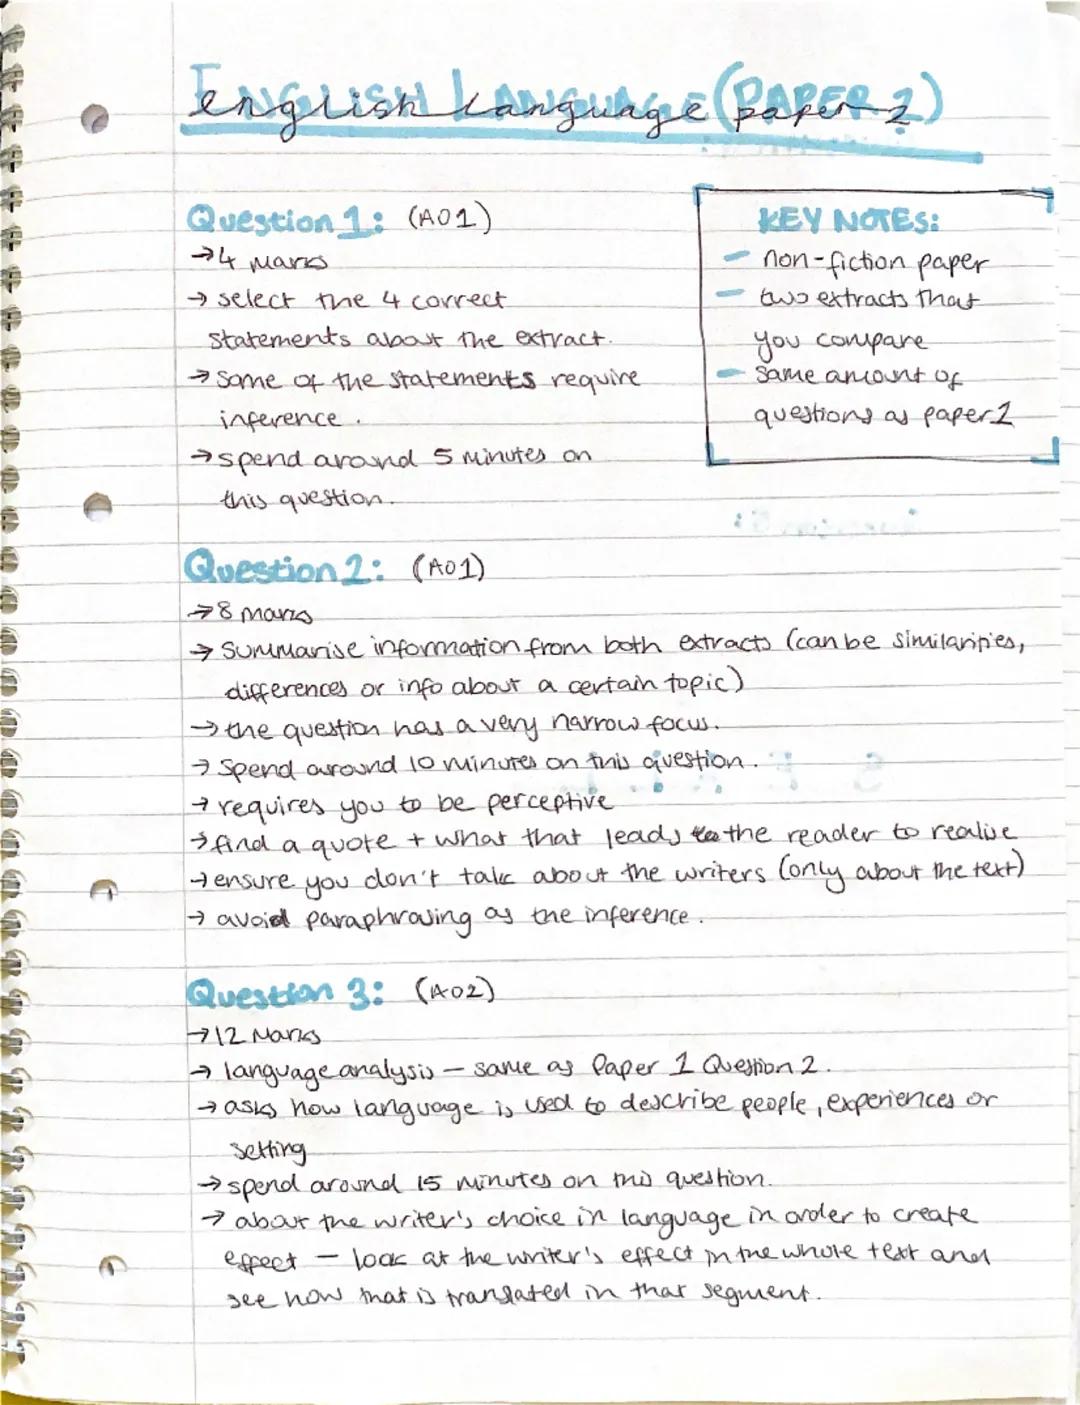 ENGLISH LANGUAGE (PAPER 2)
english language (paper 2)
Question 1: (AO1)
→ 4 marks
→ select the 4 correct
statements about the extract.
→ some of the statements require
inference.
→ spend around 5 minutes on
this question.
KEY NOTES:
- non-fiction paper
- two extracts that
you compare
- same amount of
questions as paper 1
Question 2: (AO1)
→ 8 marks
→ summarise information from both extracts (can be similarities,
differences or info about a certain topic)
→ the question has a very narrow focus.
→ spend around 10 minutes on this question.
→ requires you to be perceptive
→ find a quote + what that leads to the reader to realise
→ ensure you don't talk about the writers (only about the text)
→ avoid paraphrasing as the inference.
Question 3: (AO2)
→ 12 marks
→ language analysis - same as Paper 1 Question 2.
→ asks how language is used to describe people, experiences or
setting
→ spend around 15 minutes on this question.
→ about the writer's choice in language in order to create
effect - look at the writer's effect in the whole text and
see how that is translated in that segment.